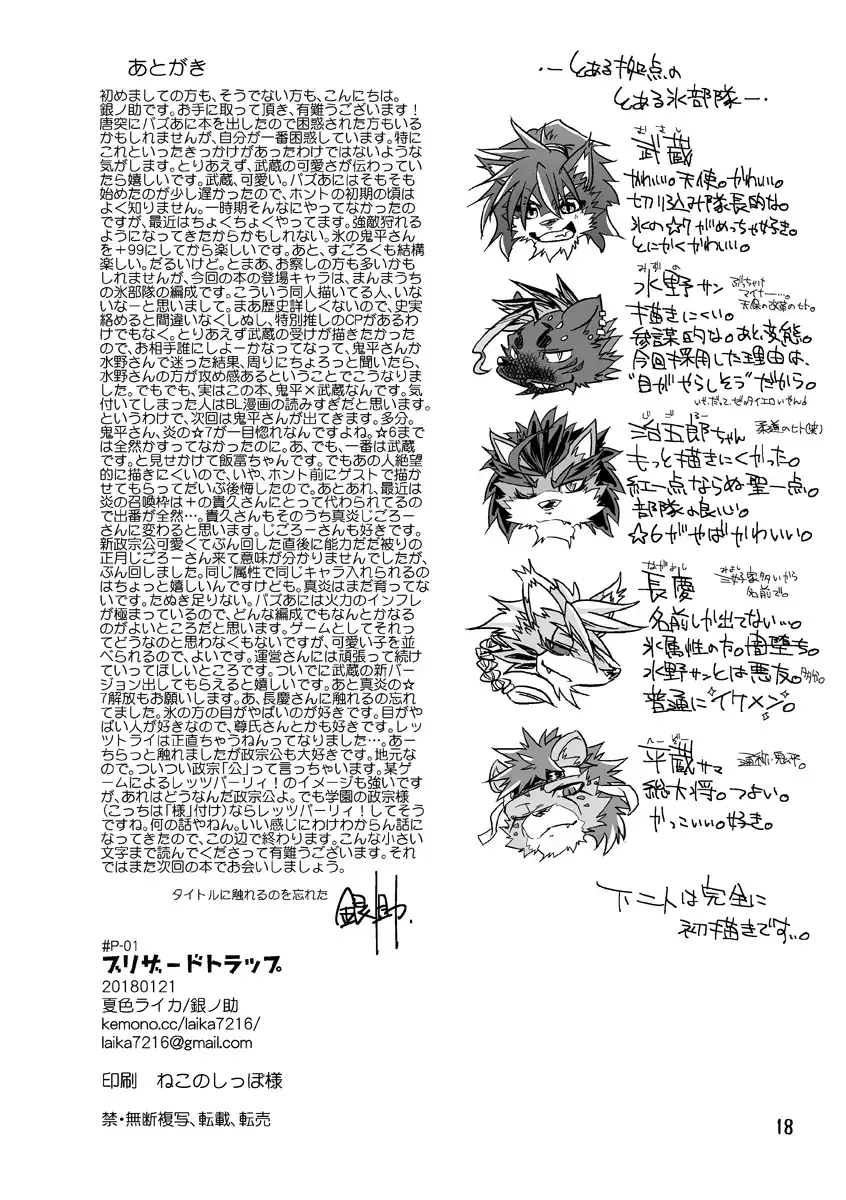 あとがき
初めましての方も、そうでない方も、こんにちは。
銀ノ助です。お手に取って頂き、有難うございます！
唐突にパズあに本を出したので困惑された方もいる
かもしれませんが、自分が一番困惑しています。特に
これといったきっかけがあったわけではないような
気がします。とりあえず、武蔵の可愛さが伝わってい
たら嬉しいです。武蔵、可愛い。パズあにはそもそも
始めたのが少し遅かったので、ホントの初期の頃は
よく知りません。一時期そんなにやってなかったの
ですが、最近はちょくちょくやってます。強敵狩れる
ようになってきたからかもしれない。氷の鬼平さん
を＋99にしてから楽しいです。あと、すごろくも結構
楽しい。だるいけど。とまあ、お察しの方も多いかも
しれませんが、今回の本の登場キャラは、まんまうち
の氷部隊の編成です。こういう同人描いてる人、いな
いなーと思いまして。まあ歴史詳しくないので、史実
絡めると間違いなくしぬし、特別推しのCPがあるわ
けでもなく。とりあえず武蔵の受けが描きたかった
ので、お相手誰にしよーかなってなって、鬼平さんか
水野さんで迷った結果、周りにちょろっと聞いたら、
水野さんの方が攻め感あるということでこうなりま
した。でもでも、実はこの本、鬼平×武蔵なんです。気
付いてしまった人はBL漫画の読みすぎだと思います。
というわけで、次回は鬼平さんが出てきます。多分。
鬼平さん、炎の☆7が一目惚れなんですよね。☆6まで
は全然かすってなかったのに。あ、でも、一番は武蔵
です。と見せかけて飯富ちゃんです。でもあの人絶望
的に描きにくいので、いや、ホント前にゲストで描か
せてもらってだいぶ後悔したので。あとあれ、最近は
炎の召喚枠は＋の貴久さんにとって代わられてるの
で出番が全然…。貴久さんもそのうち真炎じごろー
さんに変わると思います。じごろーさんも好きです。
新政宗公可愛くてぶん回した直後に能力だだ被りの
正月じごろーさん来て意味が分かりませんでしたが、
ぶん回しました。同じ属性で同じキャラ入れられるの
はちょっと嬉しいんですけども。真炎はまだ育ってな
いです。たぬき足りない。パズあには火力のインフレ
が極まっているので、どんな編成でもなんとかなる
のがよいところだと思います。ゲームとしてそれっ
てどうなのと思わなくもないですが、可愛い子を並
べられるので、よいです。運営さんには頑張って続け
ていってほしいところです。ついでに武蔵の新バー
ジョン出してもらえると嬉しいです。あと真炎の☆
7解放もお願いします。あ、長慶さんに触れるの忘れ
てました。氷の方の目がやばいのが好きです。目がや
ばい人が好きなので、尊氏さんとかも好きです。レッ
ツトライは正直ちゃうねんってなりました…。あー
ちらっと触れましたが政宗公も大好きです。地元な
ので。ついつい政宗「公」って言っちゃいます。某ゲ
ームによるレッツパーリィ！のイメージも強いです
が、あれはどうなんだ政宗公よ。でも学園の政宗様
（こっちは「様」付け）ならレッツパーリィ！してそう
ですね。何の話やねん。いい感じにわけわからん話に
なってきたので、この辺で終わります。こんな小さい
文字まで読んでくださって有難うございます。それ
ではまた次回の本でお会いしましょう。
タイトルに触れるのを忘れた
銀ノ助.
#P-01
ブリザードトラップ
20180121
夏色ライカ/銀ノ助
kemono.cc/laika7216/
laika7216@gmail.com
印刷　ねこのしっぽ様
禁・無断複写、転載、転売
・―とある拠点の
とある氷部隊―・
むさし
武蔵
かわいい。天使。かわいい。
切り込み隊長的な。
氷の☆7がめっちゃ好き。
とにかくかわいい。
みずの
水野サン
ぶっちゃけ
マイナー…。
天保の改革のヒト。
描きにくい。
参謀的な。あと変態。
今回採用した理由は、
"目がやらしそう"だから。
じごろー
治五郎ちゃん
柔道のヒト(笑)
もっと描きにくかった。
紅一点ならぬ聖一点。
部隊の良心。
☆6がやばかわいい。
ながよし
長慶
三好家多いから
名前で。
名前しか出てない…。
氷属性の方。闇堕ち。
水野サンとは悪友。多分。
普通にイケメン。
平蔵サマ
通称・鬼平。
総大将。つよい。
かっこいい。好き。
下二人は完全に
初描きです…。
18